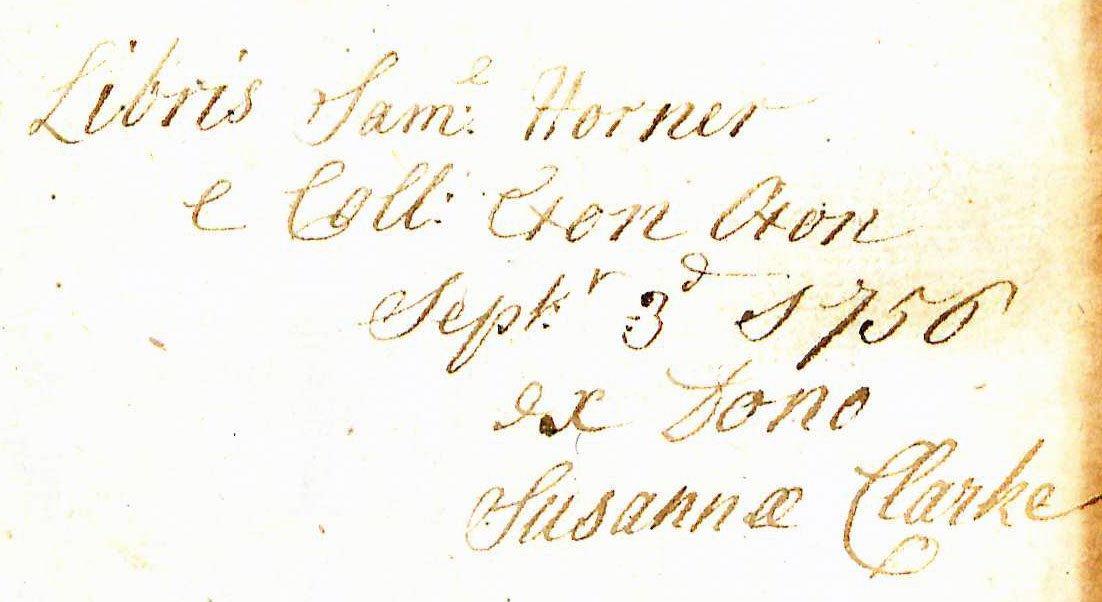 Libris Sam:e Horner
e Coll: Exon Oxon
Sept:r 3d 1756
ex Dono
Susannæ Clarke